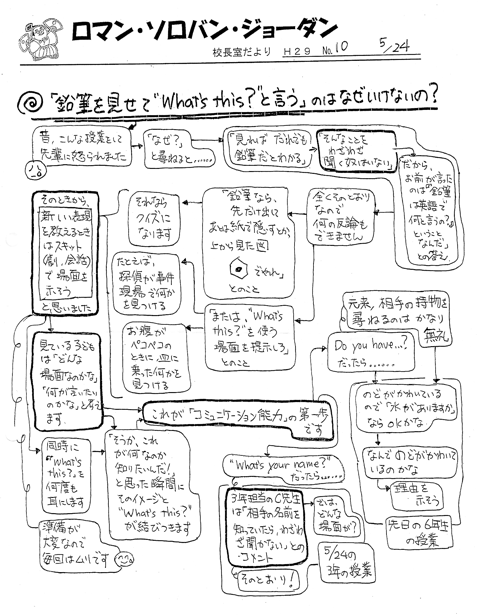 ロマン・ソロバン・ジョーダン
校長室だより H29 No.10 5/24
「鉛筆を見せて"What's this?"と言う」のはなぜいけないの?
昔、こんな授業をして
先輩に怒られました
「なぜ?」
と尋ねると……
「見れば だれでも
鉛筆だとわかる」
「そんなことを
わざわざ
聞く奴はいない」
だから、
お前が言ったの
は「鉛筆
は英語で
何と言うの?」
ということ
なんだ」
との答え
全くそのとおり
なので
何の反論も
できません
「鉛筆なら、
先だけ出して
あとは紙で隠すとか、
上から見た図
でやれ」
とのこと
それなら
クイズに
なります
「または、"What's
this?"を使う
場面を提示しろ」
とのこと
たとえば、
探偵が事件
現場で何か
を見つける
お腹が
ペコペコの
ときに皿に
乗った何かを
見つける
そのときから、
新しい表現
を教えるとき
はスキット
(劇、会話)
で場面を
示そう
と思いました
見ている子ども
は「どんな
場面なのかな」
「何が言いたい
のかな」と考え
ます
同時に
"What's
this?"を
何度も
耳にします
準備が
大変なので
毎回はムリです
「そうか、これ
が何なのか
知りたいんだ!」
と思った瞬間に
そのイメージと
"What's this?"
が結びつきます
これが「コミュニケーション能力」の第一歩
です
元来、相手の持物を
尋ねるのは かなり
無礼
Do you have...?
だったら……
のどがかわいている
ので「水がありますか」
ならOKかな
なんでのどがかわいて
いるのかな
理由を
示そう
先日の6年生
の授業
"What's your name?"
だったら……
では、
どんな
場面が?
3年担当のC先生
は「相手の名前を
知っていたら、わざわ
ざ聞かない」との
コメント
そのとおり!
5/24の
3年の授業